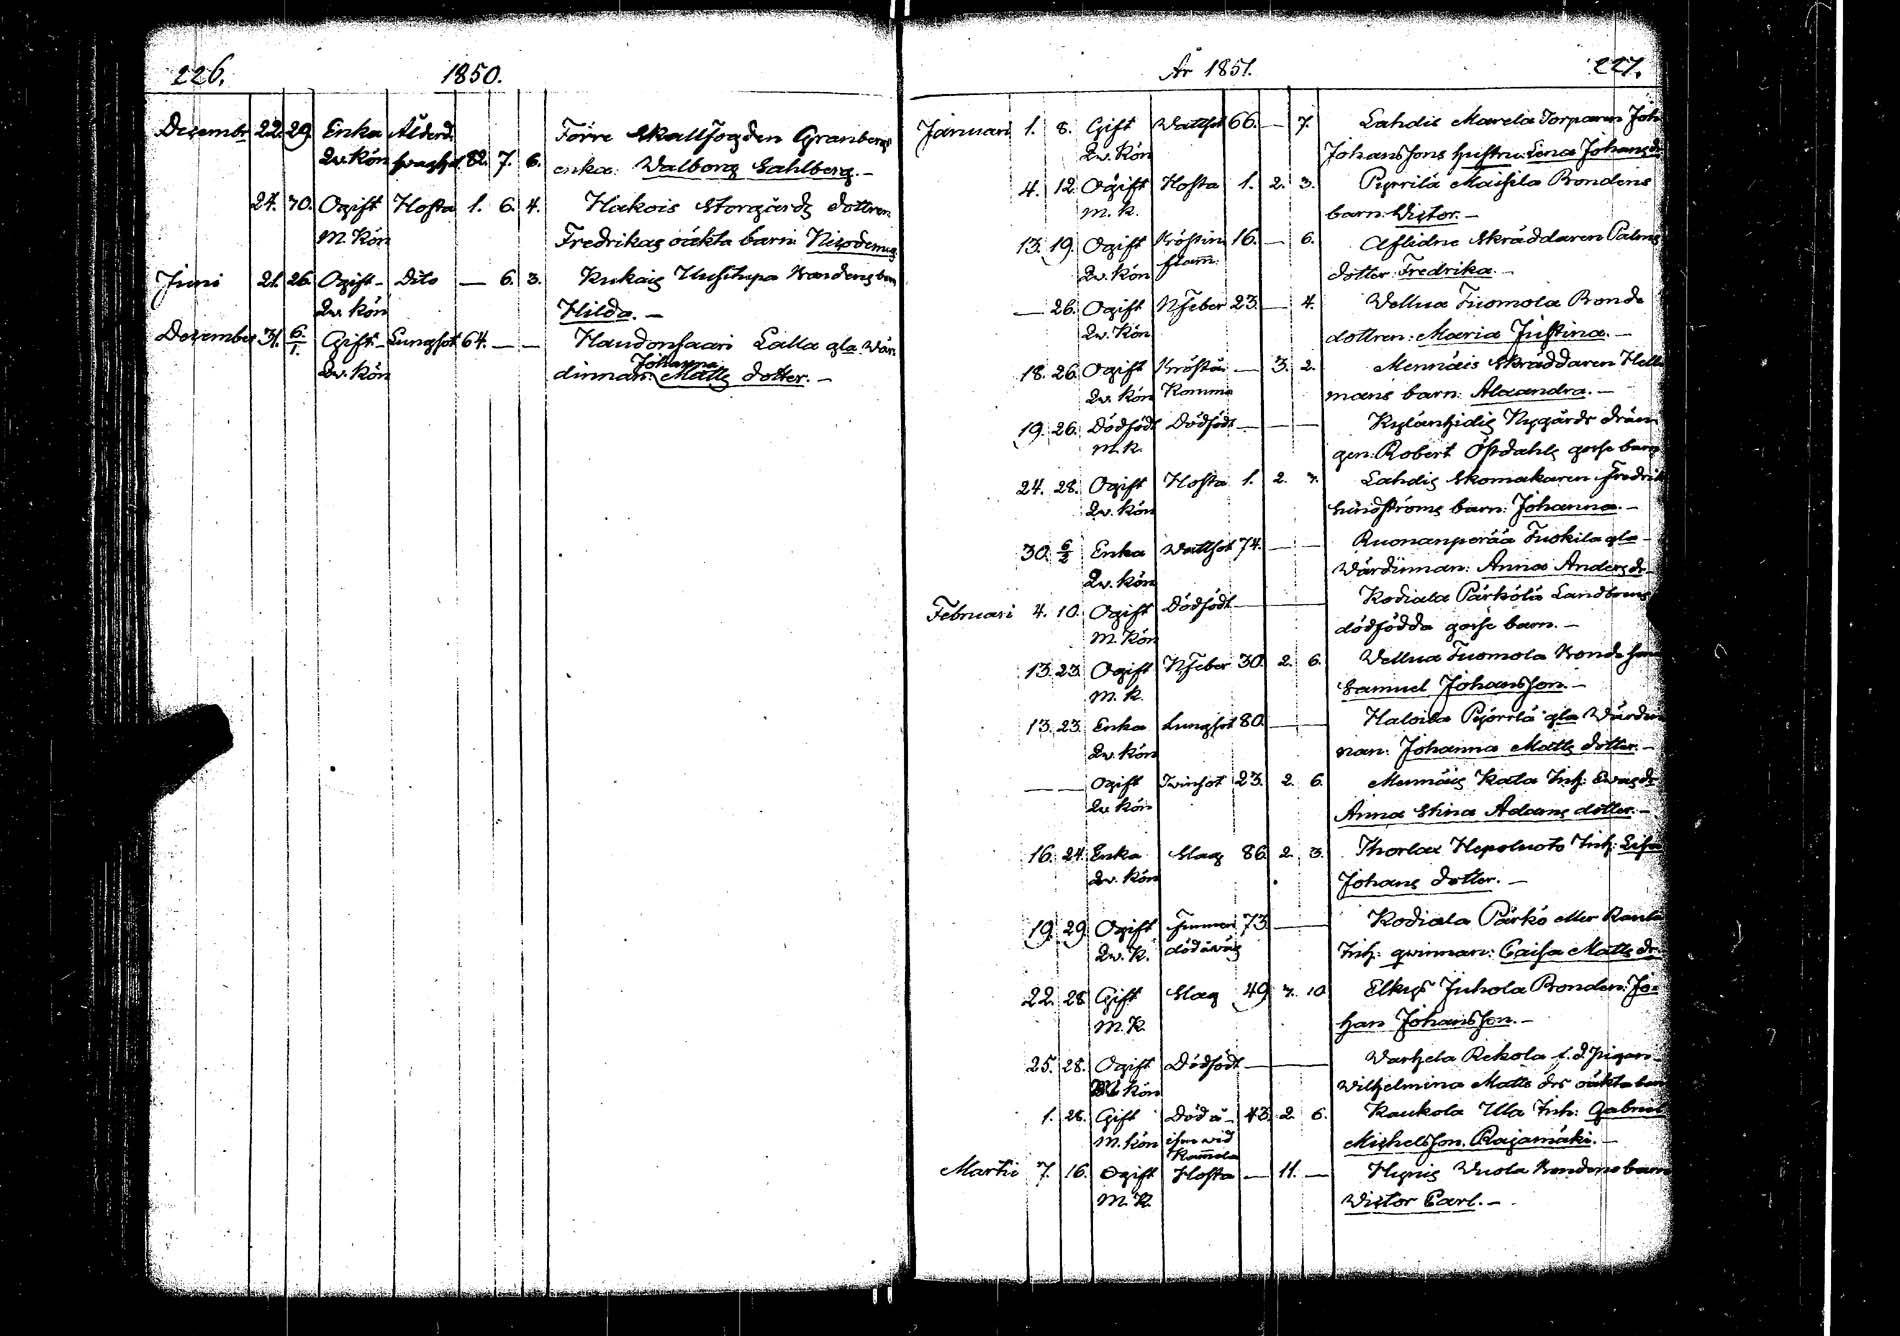 226. 1850.
Dezembr 22. 29. Enka Ålderd. Förre Skallfogden Granbergs
Qv. Kön svaghet. 82. 7. 6. enka: Walborg Sahlberg. –
24. 30. Ogift Hosta 1. 6. 4. Hakois Storgårds dottren
M. Kön Fredrikas oäkta barn: Nicodemus
Juni 21. 26. Ogift – Dito — 6. 3. Kukais Uusitupa Bondens barn
Qv. Kön Hilda. –
Dezember 31. 6/1. Gift – Lungsot 64. — — Haudonsaari Lalla gla Vär
Johanna
Qv. Kön dinnan: Matts dotter. –
År 1851. 227.
Januari 1. 8. Gift Wattsot 66. — 7. Lahdis Marela Torparen Joh
Qv. Kön Johanssons hustru: Lena Johans dr
4. 12. Ogift Hosta 1. 2. 3. Pyrrilä Maisila Bondens
M. K. barn: Victor. –
13. 19. Ogift Bröstin 16. — 6. Aflidne Skräddaren Palms
Qv. Kön flam: dotter: Fredrika. –
— 26. Ogift Nfeber 23. — 4. Vellua Tuomola Bonde
Qv. Kön dottren: Maria Justina. –
18. 26. Ogift — 3. 2. Mennäis Skräddaren Hell
Qv. Kön mans barn: Alexandra. –
19. 26. Dödfödt Dödfödt — — — Kylänhidis Nygårds drän
M. K. gen: Robert Öfvdahls gosse barn
24. 28. Ogift Hosta 1. 2. 7. Lahdis Skomakaren Fredrik
Qv. Kön Lindströms barn: Johanna. –
30. 6/2 Enka Wattsot 74. — — Ruonanperää Tuokila gla
Qv. Kön Värdinnan: Anna Anders dr –
Februari 4. 10. Ogift Dödfödt — Kodiala Pärkölä Landbonds
M. Kön dödfödda gosse barn. –
13. 23. Ogift Nfeber 30. 2. 6. Vellua Tuomola Bonde son
M. K. Samuel Johansson. –
13. 23. Enka Lungsot 80. — Haloila Pyörrilä gla Värdin
Qv. Kön nan: Johanna Matts dotter. –
— — Ogift Tvinsot 23. 2. 6. Mennäis Kala Inh: Evas dr
Qv. Kön Anna Stina Adams dotter. –
16. 24. Enka Slag 86. 2. 3. Thorlax Hepoluoto Inh: Lisa
Qv. Kön Johans dotter. –
19. 29. Ogift Funnen 73. — Kodiala Pärkö eller Rauta
Qv. K. död å väg Inh: qvinnan: Caisa Matts dr. –
22. 28. Gift Slag 49. 7. 10. Elkys Juhola Bonden: Jo-
M. K. han Johansson. –
25. 28. Ogift Dödfödt — Varhela Rekola f. d. pigan
M. Kön Wilhelmina Matts drs oäkta barn
1. 28. Gift Död å – 43. 2. 6. Kaukola Ula Inh: Gabriel
M. Kön isen vid Michelsson Rajamäki. –
Martii 7. 16. Ogift Hosta — 11. — Hypiis Vuola Bondens barn
M. K. Victor Carl. –